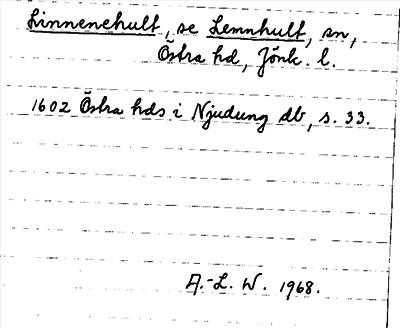 Linnenehult, se Lemnhult, sn,
Östra hd, Jönk. l.
1602 Östra hds i Njudung db, s. 33.
A.-L. W. 1968.